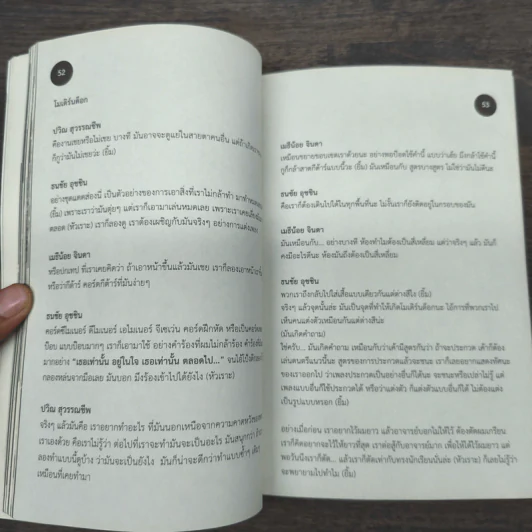 52
โมเดิร์นด็อก
ปวิณ สุวรรณชีพ
คืองานเชยหรือไม่เชย บางที มันอาจจะดูแย่ในสายตาคนอื่น แต่ถ้าเกิด
ก็กูว่ามันไม่เชยว่ะ (ยิ้ม)
ธนชัย อุชชิน
อย่างชุดแดดส่องนี่ เป็นตัวอย่างของการเอาสิ่งที่เราไม่กล้าทำ มาทำหมด
(ยิ้ม) เพราะเราว่ามันตุ่ยๆ แต่เราก็เอามาเล่นหมดเลย เพราะเราเคยเลี่ยง
ตลอด (หัวเราะ) เราก็ลองดู เราต้องเผชิญกับมันจริงๆ อย่างการแต่งเพลง
เมธีน้อย จินดา
หรือปกเทป ที่เราเคยคิดว่า ถ้าเอาหน้าขึ้นแล้วมันเชย เราก็ลองเอาหน้า
หรือว่ากีต้าร์ คอร์ดกีต้าร์ที่มันง่ายๆ
ธนชัย อุชชิน
คอร์ดซีไมเนอร์ ดีไมเนอร์ เอไมเนอร์ จีเซเว่น คอร์ดฝึกหัด หรือเป็นคอร์ด
ป๊อบ แบบป๊อบมากๆ เราก็เอามาใช้ อย่างคำร้องที่ผมไม่กล้าร้อง คำร้อง
มากอย่าง "เธอเท่านั้น อยู่ในใจ เธอเท่านั้น ตลอดไป..." จนได้
กลองหล่นจากมือเลย มันบอก มึงร้องเข้าไปได้ยังไง (หัวเราะ)
ปวิณ สุวรรณชีพ
จริงๆ แล้วมันคือ เราอยากทำอะไร ที่มันนอกเหนือจากความคาด
เราเองด้วย คือเราไม่รู้ว่า ต่อไปที่เราจะทำมันจะเป็นอะไร มันสนุกกว่า
ลองทำแบบนี้ดูบ้าง ว่ามันจะเป็นยังไง มันก็น่าจะดีกว่าทำแบบซ้ำๆ เดิมๆ
เหมือนที่เคยทำมา
53
เมธีน้อย จินดา
เหมือนขยายขอบเขตเราด้วยนะ อย่างพอป๊อดใช้คำนี้ แบบว่าเฮ้ย มึงกล้าใช้คำนี้
กูก็กล้าสาดกีต้าร์แบบนี้วะ (ยิ้ม) มันเหมือนกับ สูตรบางสูตร ไม่ใช่ว่ามันไม่ดีนะ
ธนชัย อุชชิน
คือเราก็ต้องเดินไปได้ในทุกพื้นที่นะ ไม่งั้นเราก็ยังติดอยู่ในกรอบของมัน
เมธีน้อย จินดา
มันเหมือนกับ... อย่างบางที ห้องทำไมต้องเป็นสี่เหลี่ยม แต่ว่าจริงๆ แล้ว มันก็
คงมีอะไรดีนะ ห้องมันถึงต้องเป็นสี่เหลี่ยม
ธนชัย อุชชิน
พวกเราถึงกลับไปใส่เสื้อแบบเดียวกันแต่ต่างสีไง (ยิ้ม)
จริงๆ แล้วจุดนั้นล่ะ มันเป็นจุดที่ทำให้เกิดโมเดิร์นด็อกนะ ได้การที่พวกเราไป
เห็นคนแต่งตัวเหมือนกันแต่ต่างสีน่ะ
(มันเกิดคำถาม)
ใช่ครับ... มันเกิดคำถาม เหมือนกับว่าเค้ามีสูตรกันว่า ถ้าจะประกวด เค้าก็ต้อง
เล่นดนตรีแนวนี้นะ สูตรของการประกวดแล้วจะชนะ เราก็เลยอยากแสดงทัศนะ
ของเราออกไป ว่าเพลงประกวดเป็นอย่างอื่นก็ได้นะ จะชนะหรือเปล่าไม่รู้ แต่
เพลงแบบอื่นก็ใช้ประกวดได้ หรือว่าแต่งตัว ก็แต่งตัวแบบอื่นก็ได้ ไม่ต้องแต่ง
เป็นรูปแบบหรอก (ยิ้ม)
อย่างเมื่อก่อน เราอยากไว้ผมยาว แล้วอาจารย์บอกไม่ให้ไว้ ต้องตัดผมมาเรียน
เราก็คิดอยากจะไว้ให้ยาวที่สุด เราต่อสู้กับอาจารย์มาก เพื่อให้ได้ไว้ผมยาว แต่
พอวันนึงเราก็ตัด... แล้วเราก็ตัดเท่ากับทรงนักเรียนนั่นล่ะ (หัวเราะ) ก็เลยไม่รู้ว่า
จะพยายามไปทำไม (ยิ้ม)